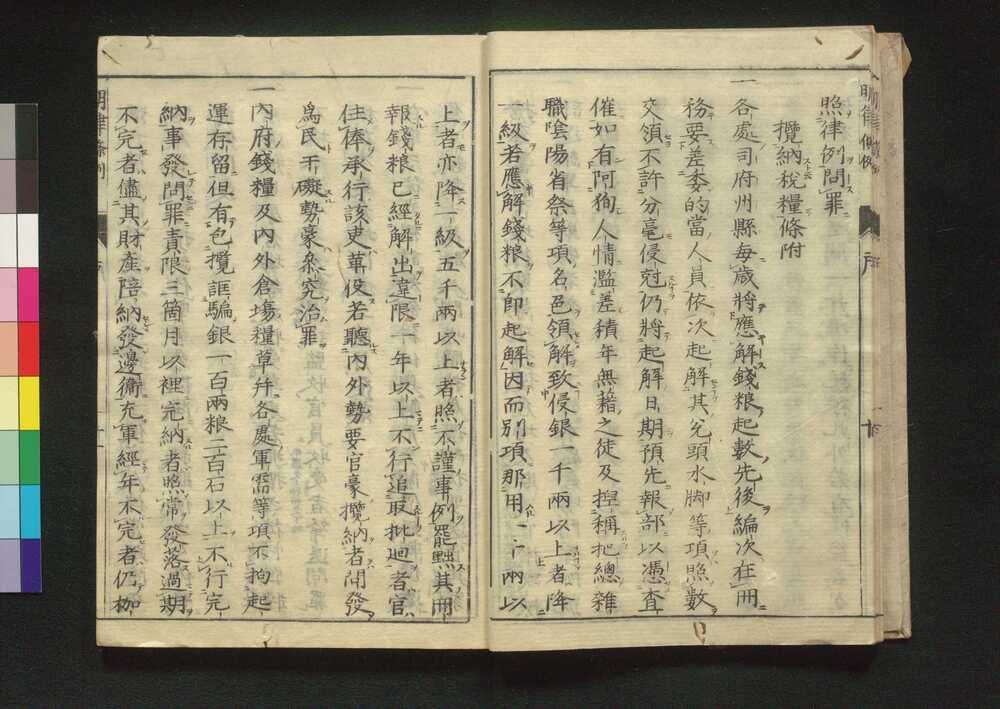 照律例問罪
攬納稅糧條附
一各處司府州縣每歲將應解錢粮起數先後編次在冊
務要差委的當人員依次起解其兌頭水脚等項照數
交領不許分毫侵尅仍將起解日期預先報部以憑查
催如有阿狥人情濫差積年無藉之徒及揑稱把總雜
職陰陽省祭等項名邑領解致侵銀一千兩以上者降
一級若應解錢粮不即起解因而別項那用一千兩以
上者亦降一級五千兩以上者照不謹事例罷黜其冊
報錢粮已經解出違限一年以上不行追取批迴者官
住俸承行該吏革役若聽內外勢要官豪攬納者開發
爲民干礙勢豪叅究治罪
一內府錢糧及內外倉塲糧草幷各處軍需等項不拘起
運存留但有包攬誆騙銀一百兩粮二百石以上不行完
納事發問罪責限三箇月以裡完納者照常發落過期
不完者儘其財產陪納發邊衞充軍經年不完者仍枷